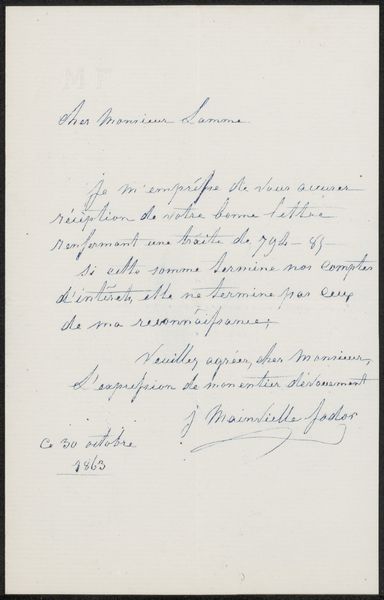 cher Monsieur Lamme
je m'empresse de vous accuser
réception de votre bonne lettre
renfermant une traite de 794 - 85 -
si cette somme termine nos comptes
d'intérets, elle ne termine pas ceux
de ma reconnaissance;
Veuillez agréer, cher Monsieur,
L'expression de mon entier dévouement
j Mainvielle fodor
Ce 30 octobre
1863